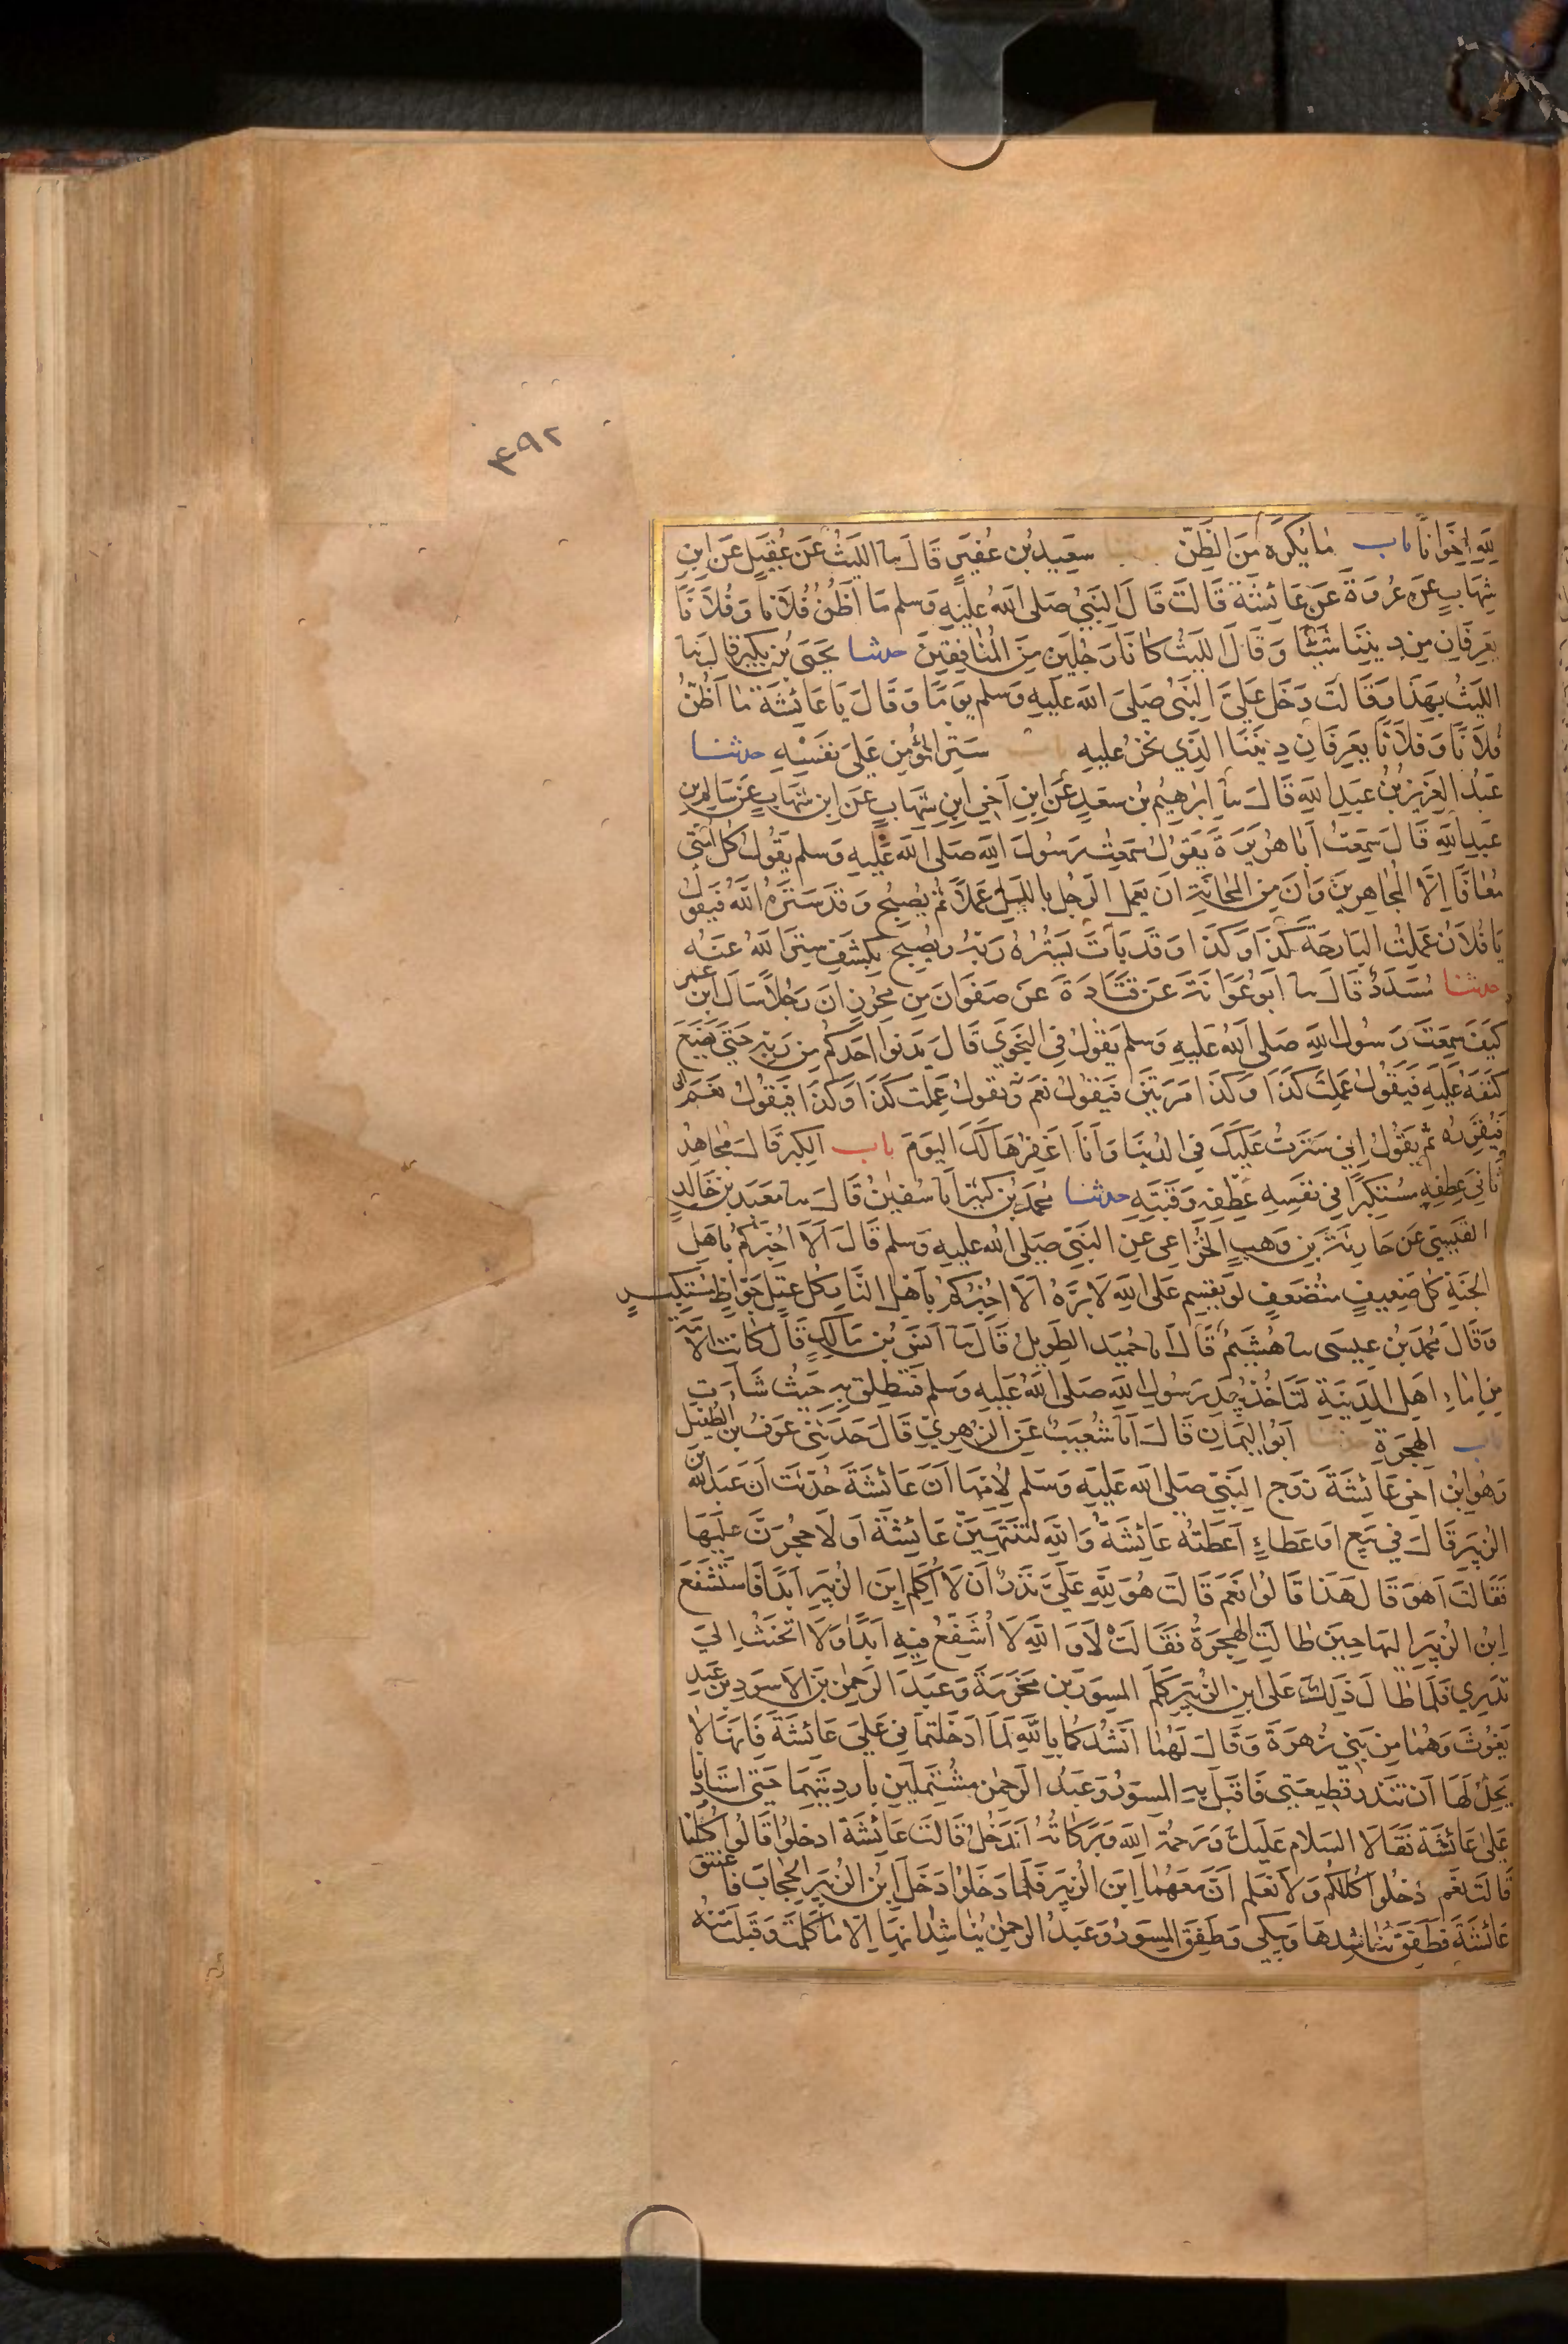 ٤٩٢
للهِ اِخْوَانًا باب مَا يُكْرَهُ مِنَ الظَّنِّ سَعِيدُ بْنُ عُفَيْرٍ قَالَ نا اللَّيْثُ عَنْ عُقَيْلٍ عَنِ ابْنِ
شِهَابٍ عَنْ عُرْوَةَ عَنْ عَائشَةَ قَالَتْ قَالَ النَّبِيُّ صَلى اللهُ عَلَيْهِ وَسلم مَا اَظُنُّ فُلَانًا وَفُلَانًا
يَعْرِفَانِ مِنْ دِينِنَا شَيْئًا وَقَالَ اللَّيْثُ كَانَا رَجُلَيْنِ مِنَ الْمُنَافِقِينَ حدثنا يَحْيَى بْنُ بُكَيْرٍ قَالَ نا
اللَّيْثُ بِهَذَا وَقَالَتْ دَخَلَ عَلَيَّ النَّبِيُّ صَلى اللهُ عَلَيْهِ وَسلم يَوْمًا وَقَالَ يَا عَائشَةُ مَا اَظُنُّ
فُلَانًا وَفُلَانًا يَعْرِفَانِ دِينَنَا الَّذِي نَحْنُ عَلَيْهِ باب سَتْرِ الْمُؤْمِنِ عَلَى نَفْسِهِ حدثنا
عَبْدُ الْعَزِيزِ بْنُ عَبْدِ اللهِ قَالَ نا اِبْرَهِيمُ بْنُ سَعْدٍ عَنِ ابْنِ اَخِي ابْنِ شِهَابٍ عَنِ ابْنِ شِهَابٍ عَنْ سَالِمِ بْنِ
عَبْدِ اللهِ قَالَ سَمِعْتُ اَبَا هُرَيْرَةَ يَقُولُ سَمِعْتُ رَسُولَ اللهِ صَلى اللهُ عَلَيْهِ وَسلم يَقُولُ كُلُّ اُمَّتِي
مُعَافًا اِلَّا الْمُجَاهِرِينَ وَاِنَّ مِنَ الْمَجَانَةِ اَنْ يَعْمَلَ الرَّجُلُ بِاللَّيْلِ عَمَلًا ثُمَّ يُصْبِحَ وَقَدْ سَتَرَهُ اللهُ فَيَقُولُ
يَا فُلَانُ عَمِلْتُ الْبَارِحَةَ كَذَا وَكَذَا وَقَدْ بَاتَ يَسْتُرُهُ رَبُّهُ وَيُصْبِحُ يَكْشِفُ سِتْرَ اللهِ عَنْهُ
حدثنا مُسَدَّدٌ قَالَ نا اَبُو عَوَانَةَ عَنْ قَتَادَةَ عَنْ صَفْوَانَ بْنِ مُحْرِزٍ اَنَّ رَجُلًا سَاَلَ ابْنَ عمر
كَيْفَ سَمِعْتَ رَسُولَ اللهِ صَلى اللهُ عَلَيْهِ وَسلم يَقُولُ فِي النَّجْوَى قَالَ يَدْنُوا اَحَدُكُمْ مِنْ رَبِّهِ حَتَّى يَضَعَ
كَنَفَهُ عَلَيْهِ فَيَقُولُ عَمِلْتَ كَذَا وَكَذَا مَرَّتَيْنِ فَيَقُولُ نَعَمْ وَيَقُولُ عَمِلْتَ كَذَا وَكَذَا فَيَقُولُ نَعَمْ
فَيُقَرِّرُهُ ثُمَّ يَقُولُ اِنِّي سَتَرْتُ عَلَيْكَ فِي الدُّنْيَا وَاَنَا اَغْفِرُهَا لَكَ الْيَوْمَ باب الْكِبْرِ قَالَ مُجَاهِدٌ
ثَانِيَ عِطْفِهِ مُسْتَكْبِرًا فِي نَفْسِهِ عِطْفِهِ رَقَبَتِهِ حدثنا مُحَمَّدُ بْنُ كَثِيرٍ اَنا سُفْيَنُ قَالَ نا مَعْبَدُ بْنُ خَالِدٍ
الْقَيْسِيُّ عَنْ حَارِثَةَ بْنِ وَهْبٍ الْخُزَاعِي عَنِ النَّبِيِّ صَلى اللهُ عَلَيْهِ وَسلم قَالَ اَلَا اُخْبِرُكُمْ بِاَهْلِ
الْجَنَّةِ كُلُّ ضَعِيفٍ مُتَضَعَّفٍ لَوْ يُقْسِمُ عَلَى اللهِ لَاَبَرَّهُ اَلَا اُخْبِرُكُمْ بِاَهْلِ النَّارِ كُلُّ عُتُلٍّ جَوَّاظٍ مُسْتَكْبِرٍ
وَقَالَ مُحَمَّدُ بْنُ عِيسَى نا هُشَيْمٌ قَالَ اَنا حُمَيْدٌ الطَّوِيلُ قَالَ نا اَنَسُ بْنُ مَالِكٍ قَالَ كَانَتِ الْاَمَةُ
مِنْ اِمَاءِ اَهْلِ الْمَدِينَةِ لَتَاْخُذُ بِيَدِ رَسُولِ اللهِ صَلى اللهُ عَلَيْهِ وَسلم فَتَنْطَلِقُ بِهِ حَيْثُ شَاءَتْ
باب الْهِجْرَةِ حدثنا اَبُو الْيَمَانِ قَالَ اَنا شُعَيْبٌ عَنِ الزُّهْرِيِّ قَالَ حَدَّثَنِي عَوْفُ بْنُ الطُّفَيْلِ
وَهُوَ ابْنُ اَخِي عَائشَةَ زَوْجِ النَّبِيِّ صَلى اللهُ عَلَيْهِ وَسَلم لِاُمِّهَا اَنَّ عَائشَةَ حُدِّثَتْ اَنَّ عَبْدَ اللهِ بْنَ
الزُّبَيْرِ قَالَ فِي بَيْعٍ اَوْ عَطَاءٍ اَعْطَتْهُ عَائشَةُ وَاللهِ لَتَنْتَهِيَنَّ عَائشَةُ اَوْ لَاَحْجُرَنَّ عَلَيْهَا
فَقَالَتْ اَهُوَ قَالَ هَذَا قَالُوا نَعَمْ قَالَتْ هُوَ لِلهِ عَلَيَّ نَذْرٌ اَنْ لَا اُكَلِّمَ ابْنَ الزُّبَيْرِ اَبَدًا فَاسْتَشْفَعَ
ابْنُ الزُّبَيْرِ اِلَيْهَا حِينَ طَالَتِ الْهِجْرَةُ فَقَالَتْ لَا وَاللهِ لَا اُشَفِّعُ فِيهِ اَبَدًا وَلَا اَتَحَنَّثُ اِلَى
نَذْرِي فَلَمَّا طَالَ ذَلِكَ عَلَى ابْنِ الزُّبَيْرِ كَلَّمَ الْمِسْوَرَ بْنَ مَخْرَمَةَ وَعَبْدَ الرَّحْمَنِ بْنَ الْاَسْوَدِ بْنِ عَبْدِ
يَغُوثَ وَهُمَا مِنْ بَنِي زُهْرَةَ وَقَالَ لَهُمَا اَنْشُدُكُمَا بِاللهِ لَمَا اَدْخَلْتُمَانِي عَلَى عَائشَةَ فَاِنَّهَا لَا
يَحِلُّ لَهَا اَنْ تَنْذُرَ قَطِيعَتِي فَاَقْبَلَ بِهِ الْمِسْوَرُ وَعَبْدُ الرَّحْمَنِ مُشْتَمِلَيْنِ بِاَرْدِيَتِهِمَا حَتَّى اسْتَاْذَنَا
عَلَى عَائشَةَ فَقَالَا السَّلَامُ عَلَيْكِ وَرَحْمَةُ اللهِ وَبَرَكَاتُهُ اَنَدْخُلُ قَالَتْ عَائشَةُ ادْخُلُوا قَالُوا كُلُّنَا
قَالَتْ نَعَمْ ادْخُلُوا كُلُّكُمْ وَلَا تَعْلَمُ اَنَّ مَعَهُمَا ابْنَ الزُّبَيْرِ فَلَمَّا دَخَلُوا دَخَلَ ابْنُ الزُّبَيْرِ الْحِجَابَ فَاعْتَنَقَ
عَائشَةَ فَطَفِقَ يُنَاشِدُهَا وَيَبْكِي وَطَفِقَ الْمِسْوَرُ وَعَبْدُ الرَّحْمَنِ يُنَاشِدَانِهَا اِلَّا مَا كَلَّمَتْهُ وَقَبِلَتْ مِنْهُ